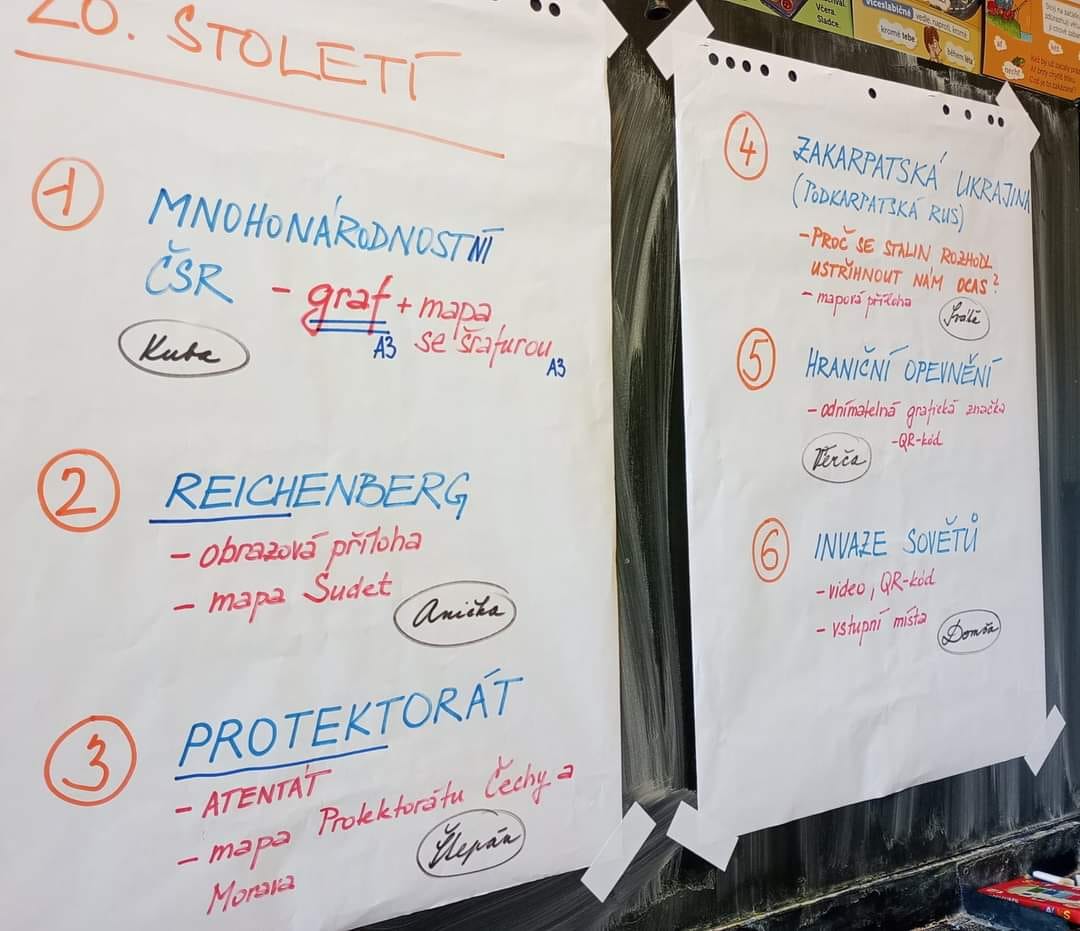 20. STOLETÍ
1
MNOHONÁRODNOSTNÍ
ČSR - graf + mapa
A3 se šrafurou A3
Kuba
2
REICHENBERG
- obrazová příloha
- mapa Sudet
Anička
3
PROTEKTORÁT
- ATENTÁT
- mapa Protektorátu Čechy a
Morava
Štěpán
4
ZAKARPATSKÁ UKRAJINA
(PODKARPATSKÁ RUS)
- PROČ SE STALIN ROZHODL
USTŘIHNOUT NÁM OCAS?
- mapová příloha
5
HRANIČNÍ OPEVNĚNÍ
- odnímatelná grafická značka
- QR-kód
Verča
6
INVAZE SOVĚTŮ
- video, QR-kód
- vstupní místa
Domča
Včera.
Sladce.
víceslabičné
vedle, naproti, kromě
kromě tebe
během léta
když
nechť